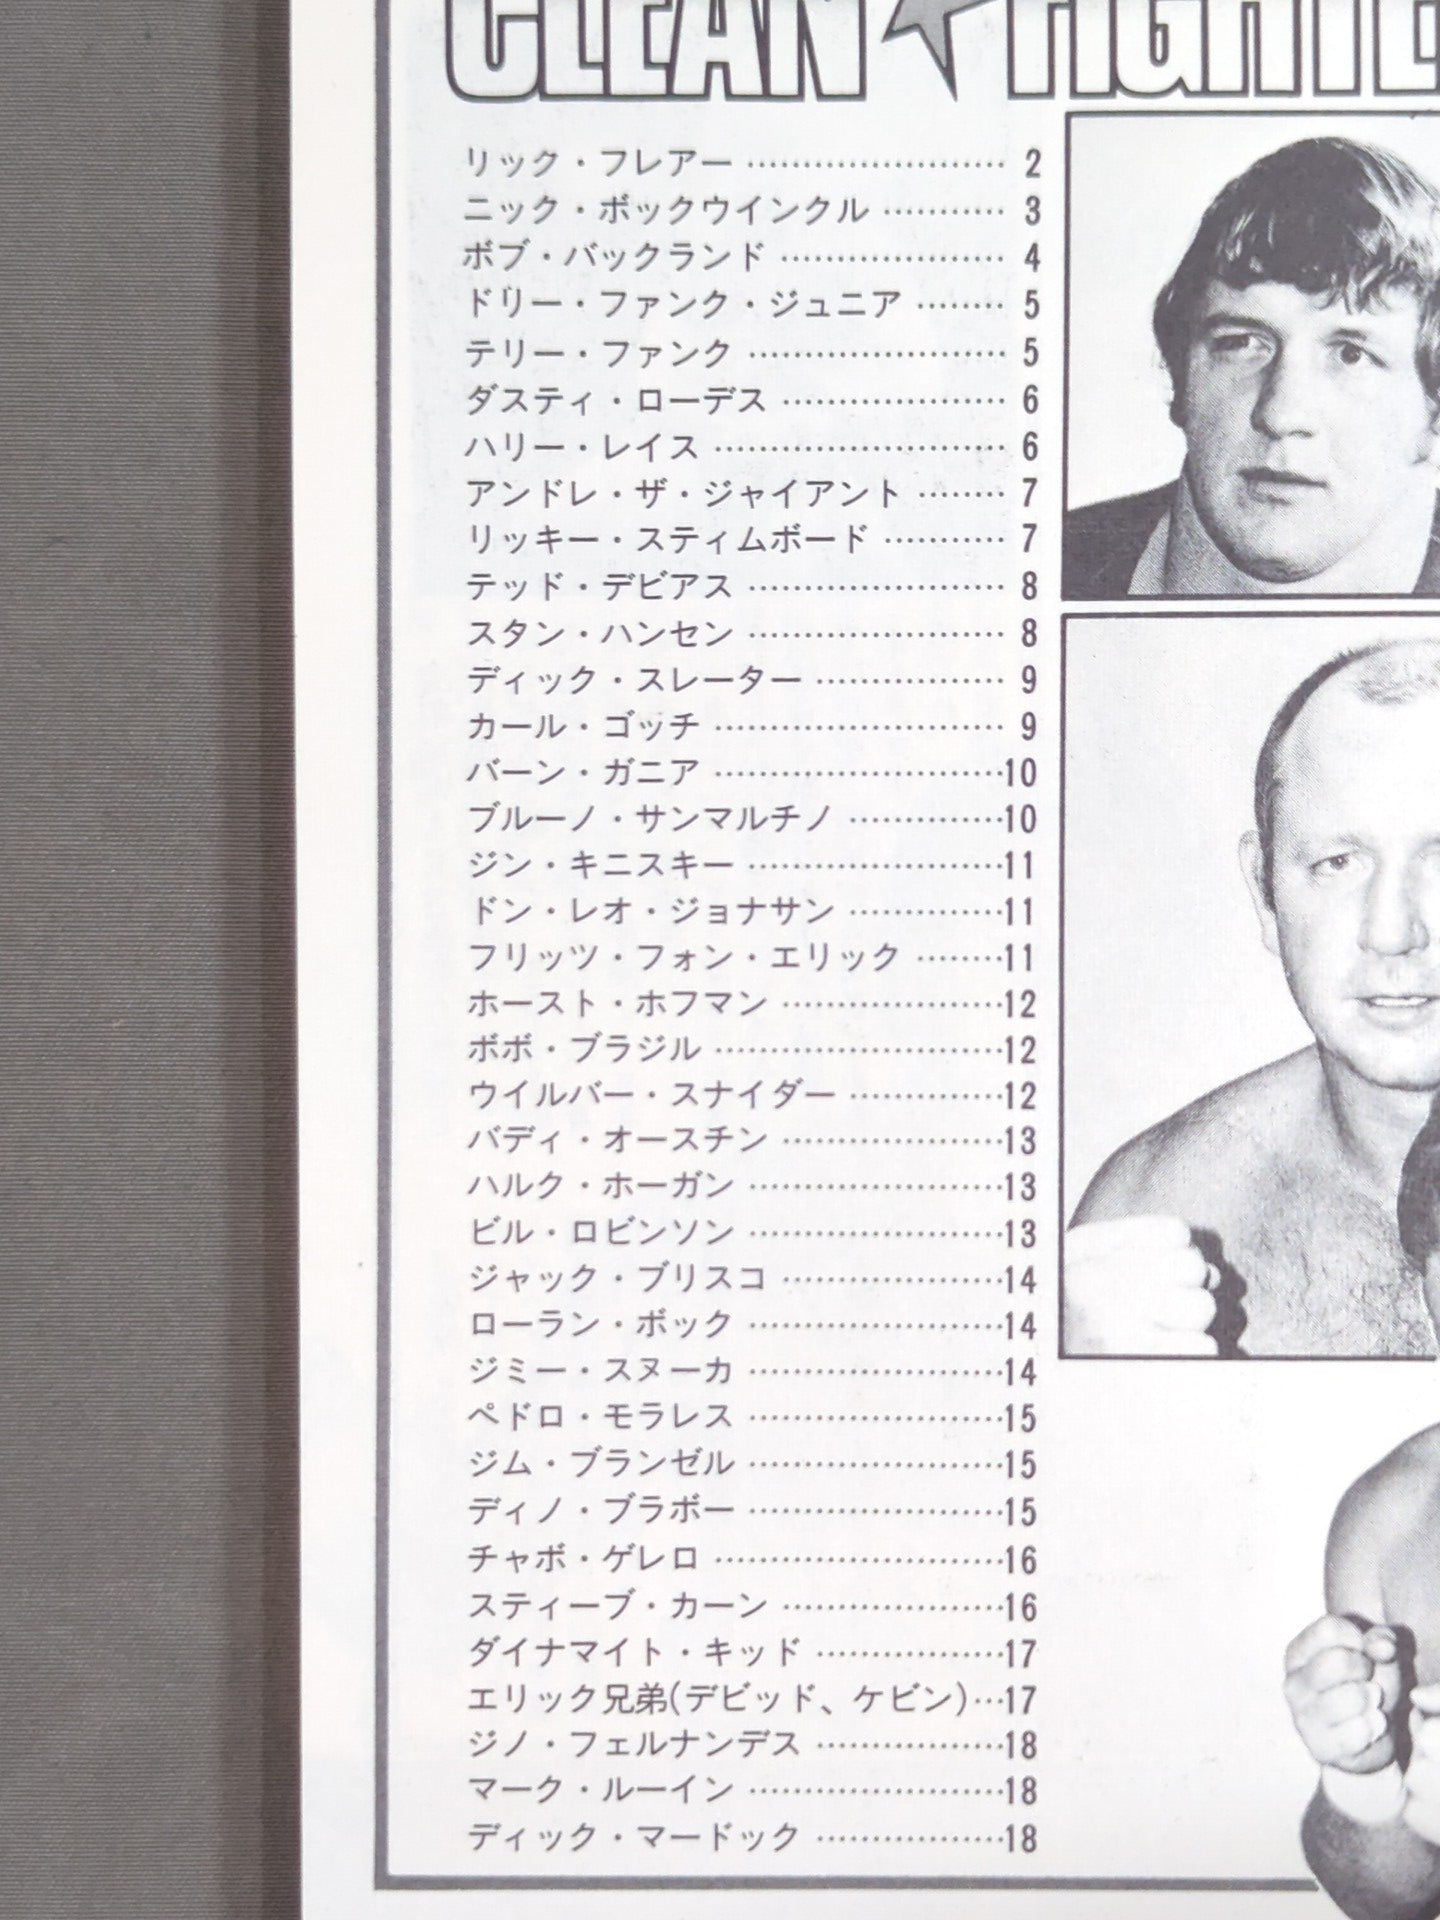 CLEAN★FIGHTE
リック・フレアー……………………2
ニック・ボックウインクル…………3
ボブ・バックランド…………………4
ドリー・ファンク・ジュニア………5
テリー・ファンク……………………5
ダスティ・ローデス…………………6
ハリー・レイス………………………6
アンドレ・ザ・ジャイアント………7
リッキー・スティムボード…………7
テッド・デビアス……………………8
スタン・ハンセン……………………8
ディック・スレーター………………9
カール・ゴッチ………………………9
バーン・ガニア………………………10
ブルーノ・サンマルチノ……………10
ジン・キニスキー……………………11
ドン・レオ・ジョナサン……………11
フリッツ・フォン・エリック………11
ホースト・ホフマン…………………12
ボボ・ブラジル………………………12
ウイルバー・スナイダー……………12
バディ・オースチン…………………13
ハルク・ホーガン……………………13
ビル・ロビンソン……………………13
ジャック・ブリスコ…………………14
ローラン・ボック……………………14
ジミー・スヌーカ……………………14
ペドロ・モラレス……………………15
ジム・ブランゼル……………………15
ディノ・ブラボー……………………15
チャボ・ゲレロ………………………16
スティーブ・カーン…………………16
ダイナマイト・キッド………………17
エリック兄弟(デビッド、ケビン)…17
ジノ・フェルナンデス………………18
マーク・ルーイン……………………18
ディック・マードック………………18